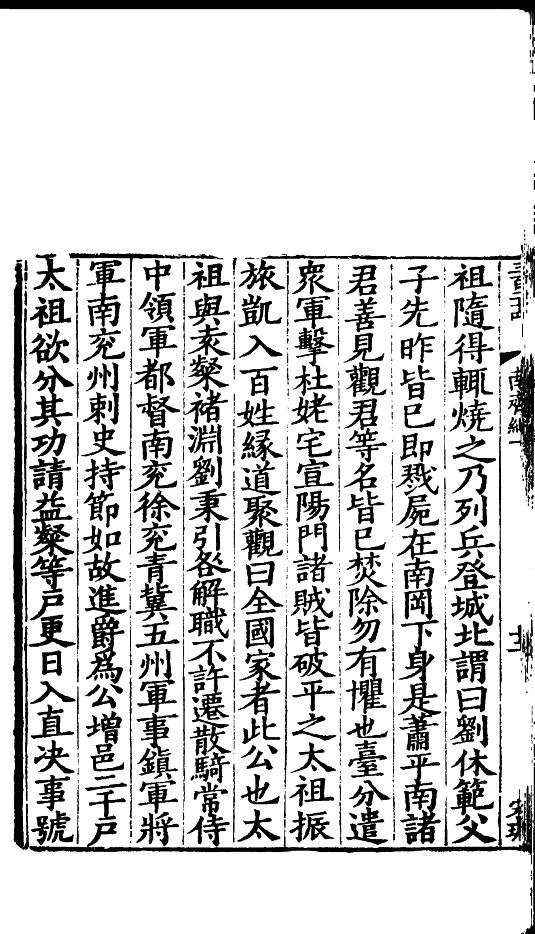 南齊紀一
祖隨得輙燒之乃列兵登城北謂曰劉休範父
子先昨皆已即戮屍在南岡下身是蕭平南諸
君善見觀君等名皆已焚除勿有懼也臺分遣
衆軍擊杜姥宅宣陽門諸賊皆破平之太祖振
旅凱入百姓緣道聚觀曰全國家者此公也太
祖與袁粲褚淵劉秉引咎解職不許遷散騎常侍
中領軍都督南兖徐兖青冀五州軍事鎮軍將
軍南兖州刺史持節如故進爵爲公增邑二千戶
太祖欲分其功請益粲等戶更日入直决事號